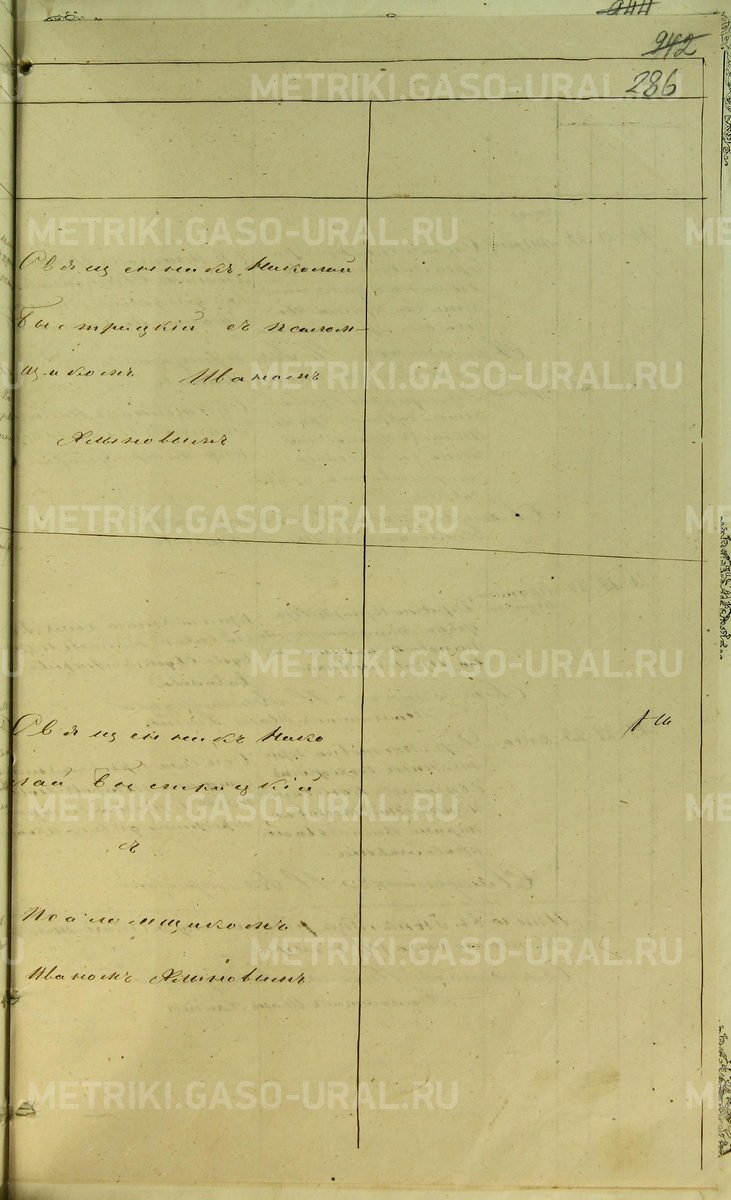 944
942
286
Священникъ Николай
Быстрицкій съ псалом-
щикомъ Иваномъ
Хлыновымъ
Священникъ Нико
лай Быстрицкій
съ
Псаломщикомъ
Иваномъ Хлыновымъ
METRIKI.GASO-URAL.RU